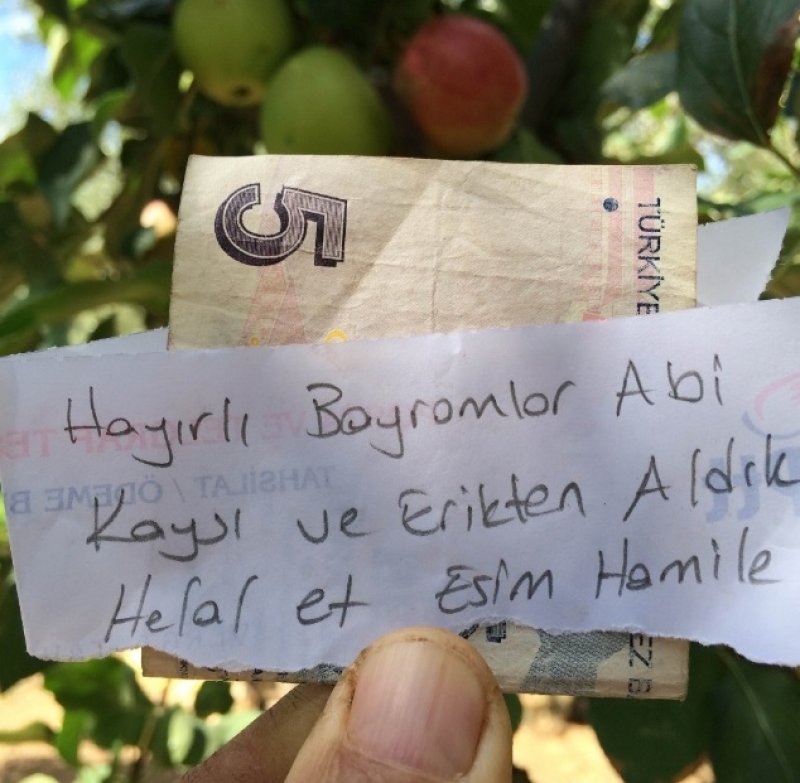 5
TÜRKİYE
Hayırlı Bayramlar Abi
Kaysı ve Erikten Aldık
Helal et Esim Hamile
TAHSİLAT / ÖDEME B
EZ B